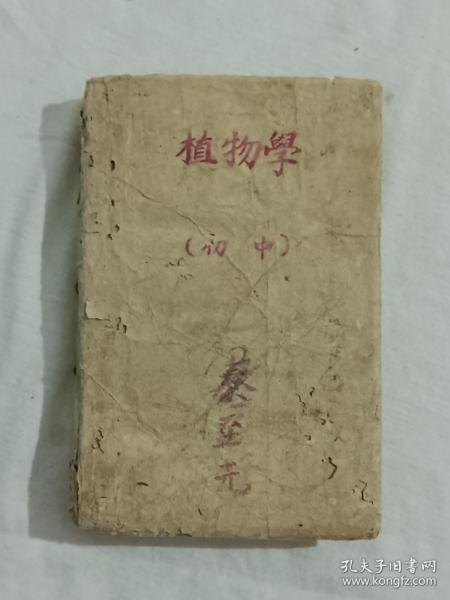 植物學
(初中)
秦至元
孔夫子旧书网
www.kongfz.com